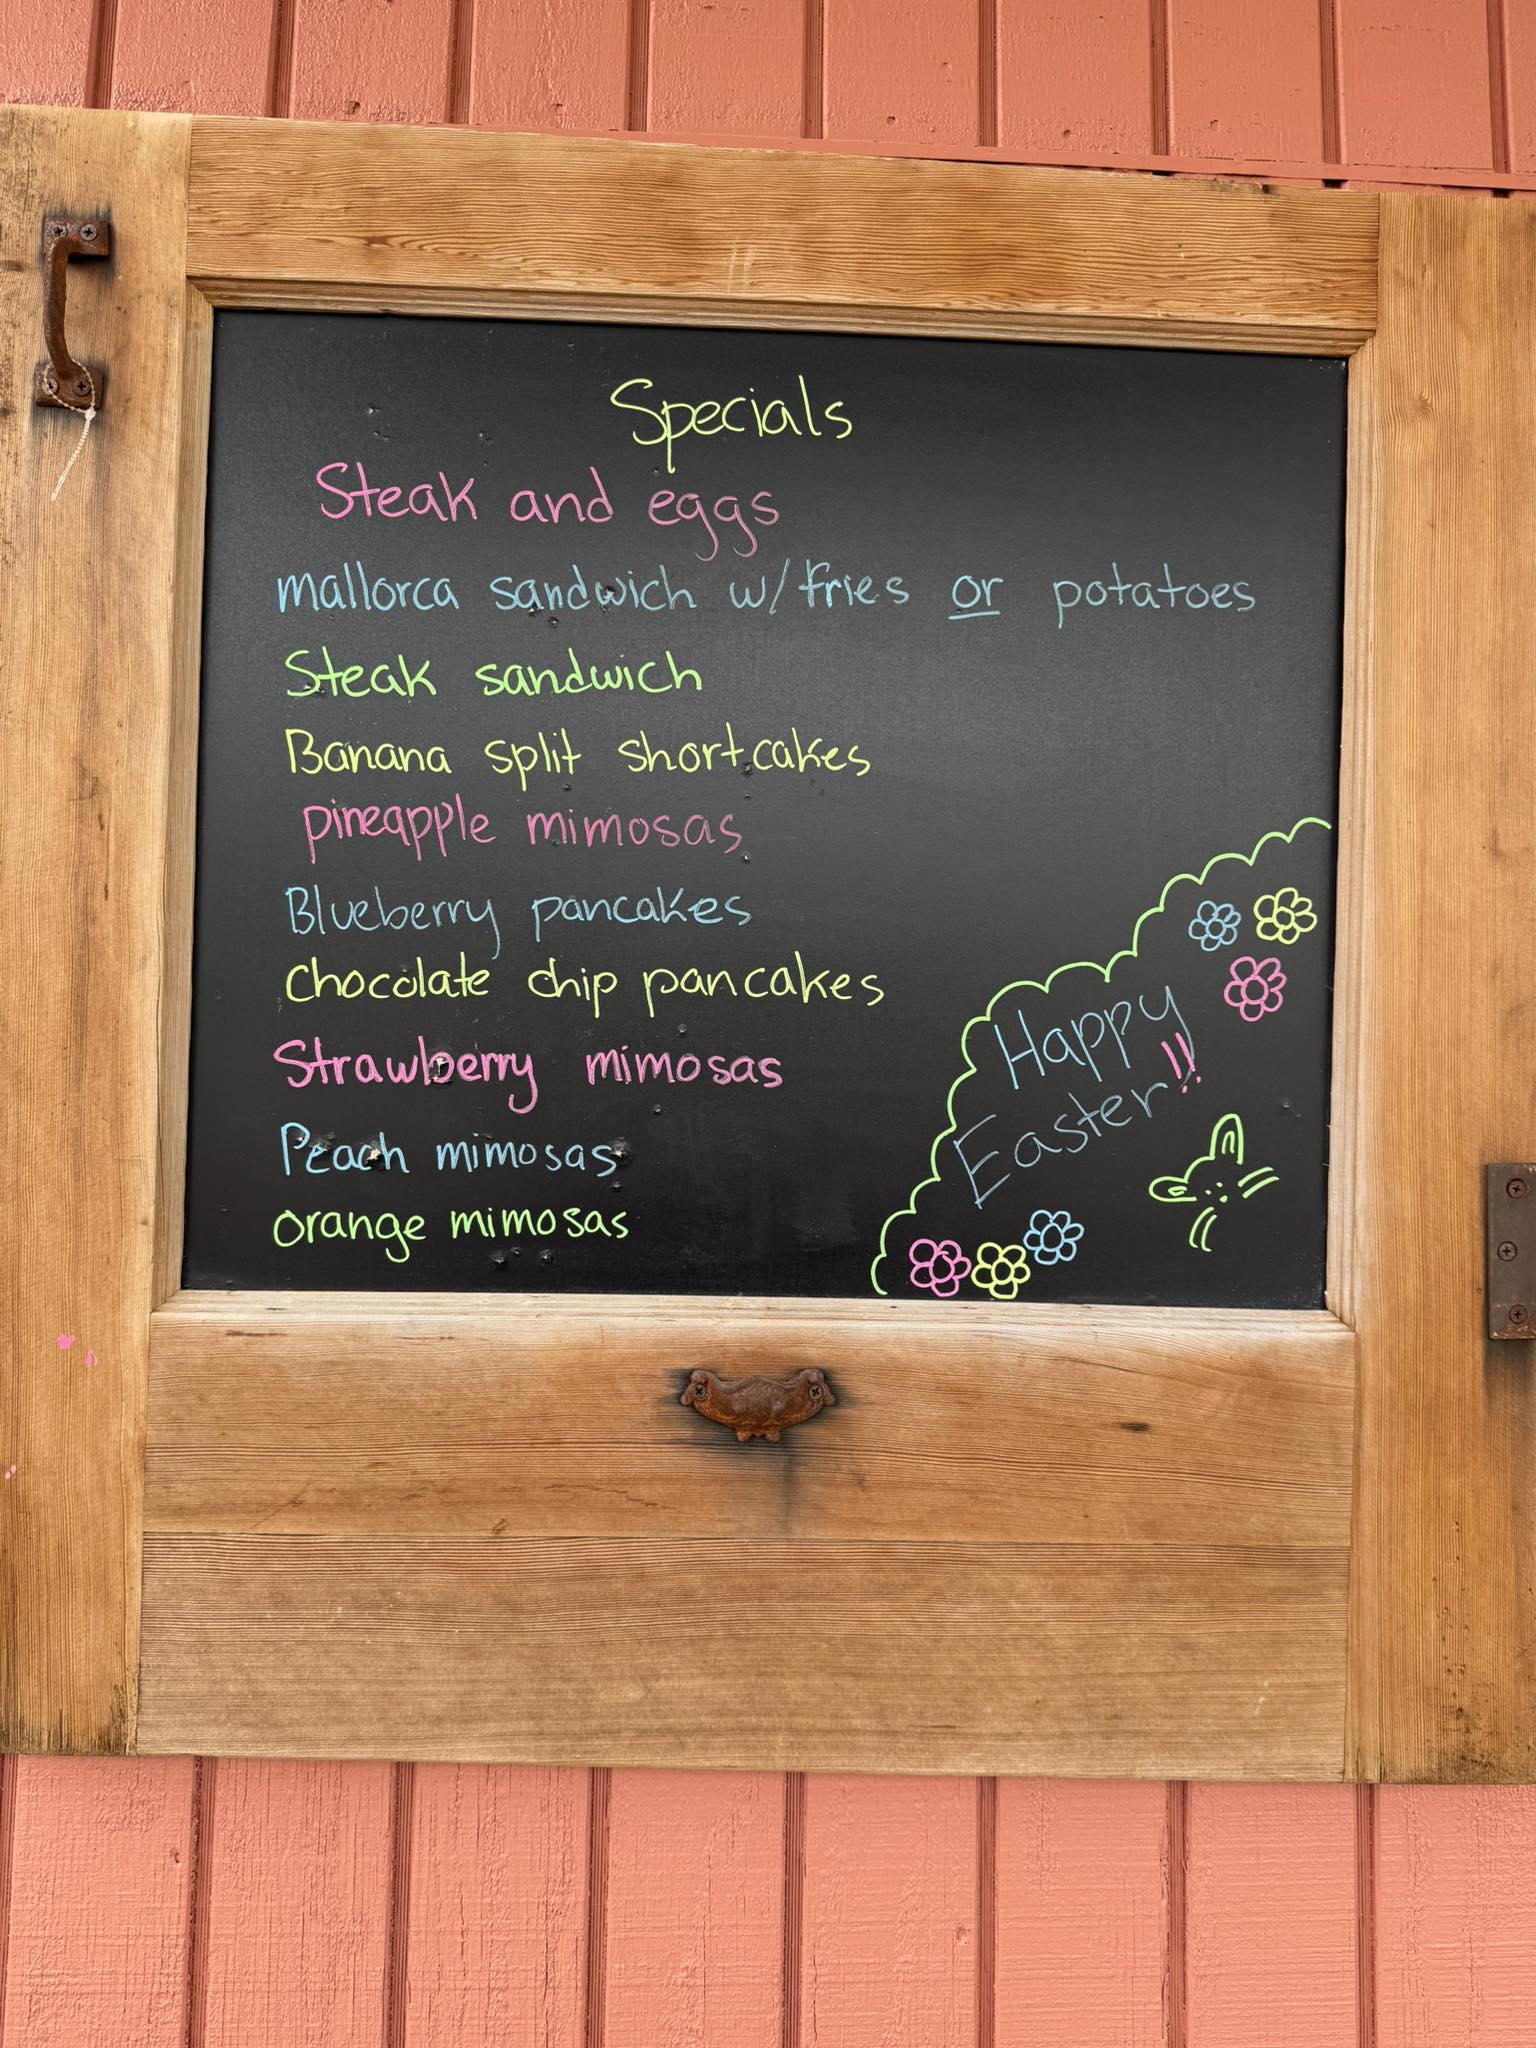 Specials
Steak and eggs
mallorca sandwich w/fries or potatoes
Steak sandwich
Banana split shortcakes
pineapple mimosas
Blueberry pancakes
Chocolate chip pancakes
Strawberry mimosas
Peach mimosas
orange mimosas
Happy
Easter!!